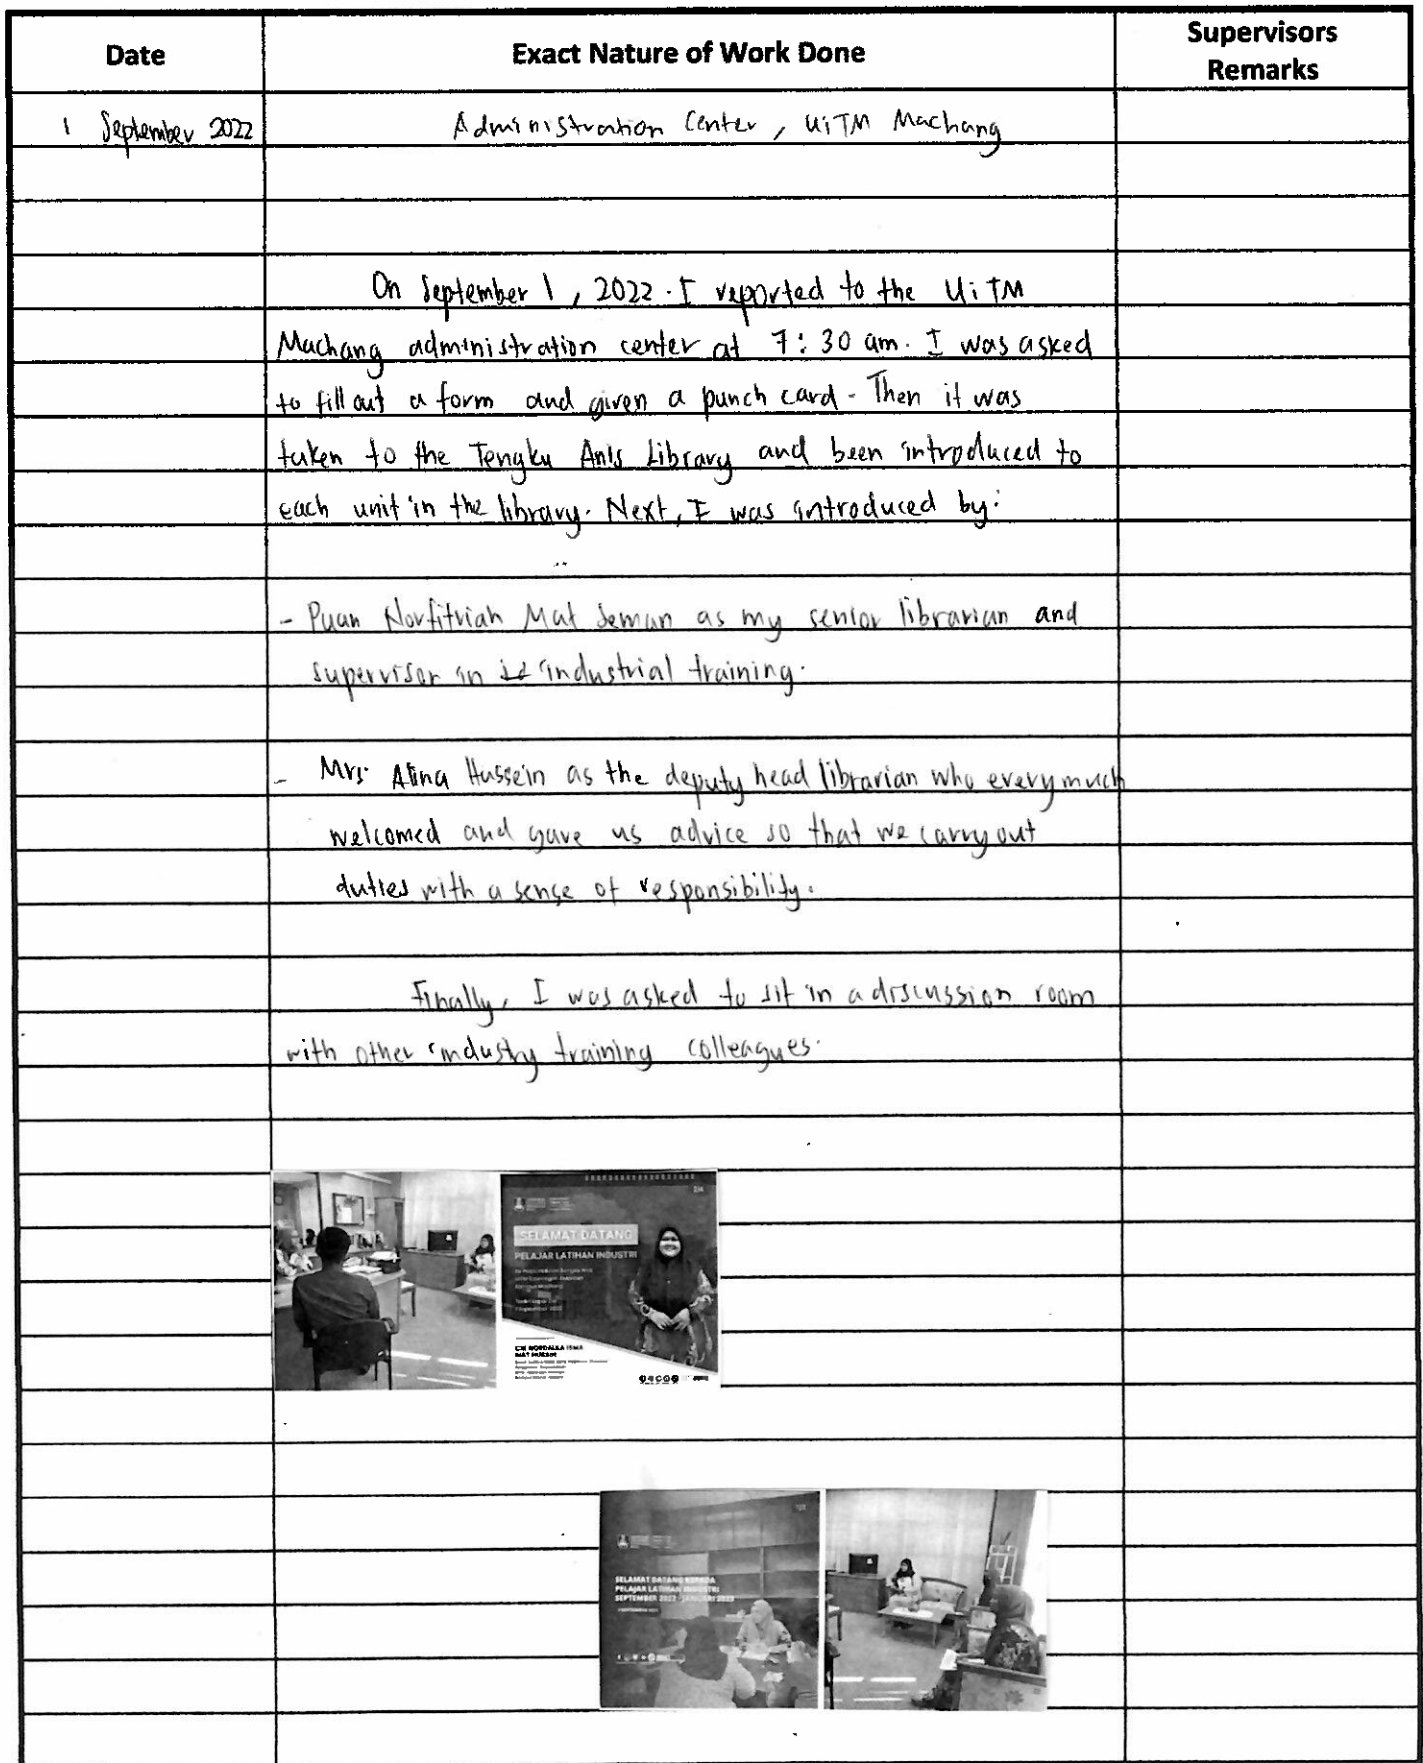 Date
Exact Nature of Work Done
Supervisors
Remarks
1 September 2022
Administration Center, UiTM Machang
On September 1, 2022. I reported to the UiTM
Machang administration center at 7:30 am. I was asked
to fill out a form and given a punch card. Then it was
taken to the Tengku Anis Library and been introduced to
each unit in the library. Next, I was introduced by:
- Puan Norfitriah Mat Seman as my senior librarian and
supervisor in industrial training.
- Mrs. Alina Hussein as the deputy head librarian who every much
welcomed and gave us advice so that we carry out
duties with a sense of responsibility.
Finally, I was asked to sit in a discussion room
with other industry training colleagues.
SELAMAT DATANG
PELAJAR LATIHAN INDUSTRI
SELAMAT DATANG KEPADA
PELAJAR LATIHAN INDUSTRI
SEPTEMBER 2022 - JANUARI 2023